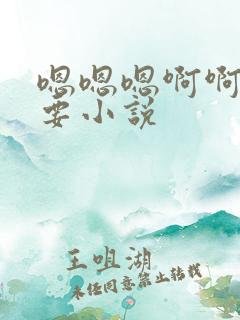 嗯嗯嗯啊啊
要小说
王咀湖
未经同意禁止转载